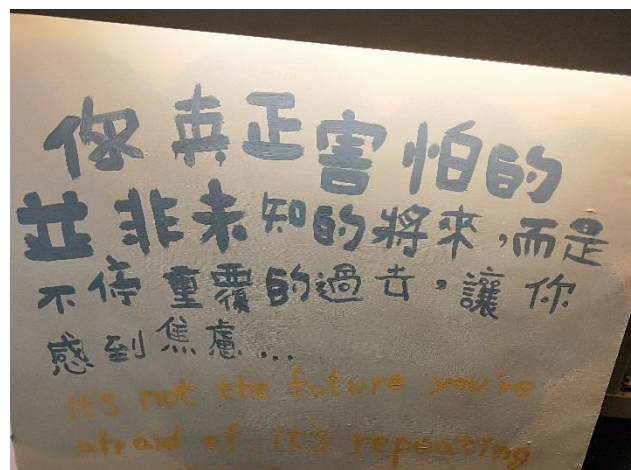 你真正害怕的
並非未知的將來，而是
不停重覆的過去，讓你
感到焦慮...
It's not the future you're
afraid of. It's repeating